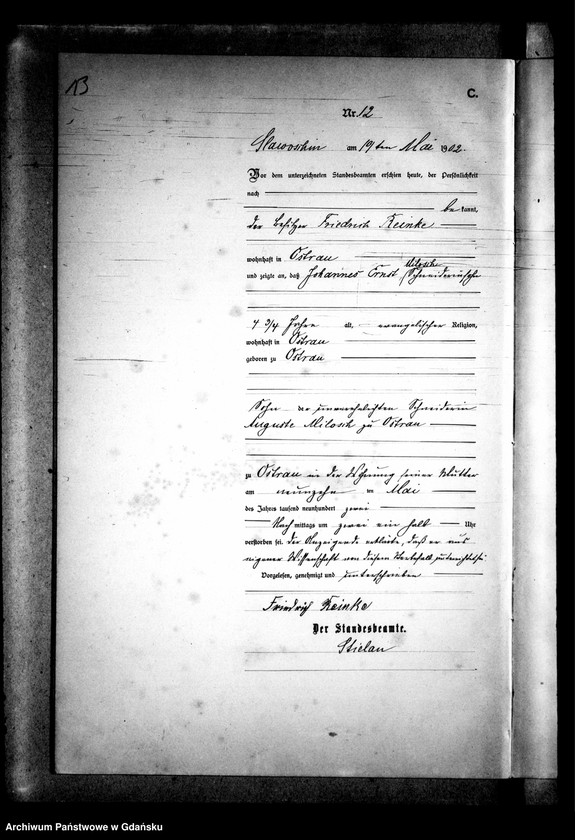 13
C.
Nr. 12
Slawoschin am 19ten Mai 1902.
Vor dem unterzeichneten Standesbeamten erschien heute, der Persönlichkeit
nach
bekannt,
der Besitzer Friedrich Reinke
wohnhaft in Ostrau
Milosch
und zeigte an, daß Johannes Ernst
4 3/4 Jahre alt, evangelischer Religion,
wohnhaft in Ostrau
geboren zu Ostrau
Sohn der unverehelichten Schneiderin
Auguste Milosch zu Ostrau
zu Ostrau in der Wohnung seiner Mutter
am neunzehn ten Mai
des Jahres tausend neunhundert zwei
Nach mittags um zwei ein halb Uhr
verstorben sei. Der Anzeigende erklärte, daß er aus
eigener Wissenschaft von diesem Sterbefall unterrichtet sei
Vorgelesen, genehmigt und unterschrieben
Friedrich Reinke
Der Standesbeamte.
Stielau
Archiwum Państwowe w Gdańsku